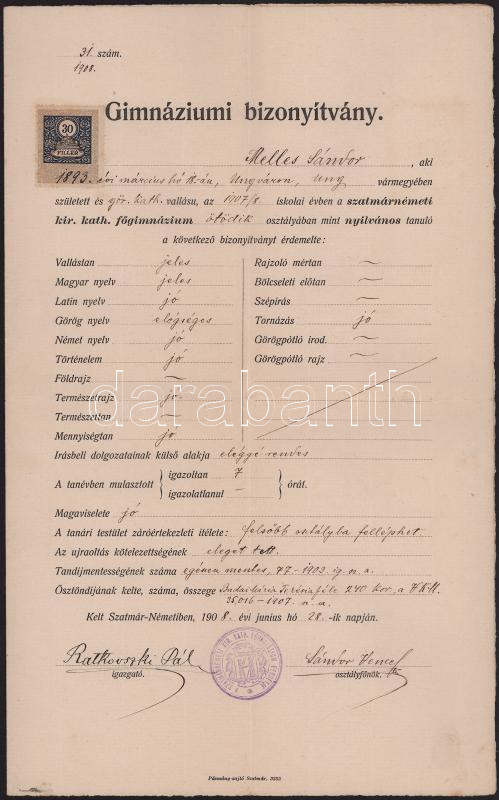 31. szám.
1908.
Gimnáziumi bizonyítvány.
30
FILLÉR
Melles Sándor, aki
1893. évi március hó 18-án, Ungváron, Ung vármegyében
született és gör. kath. vallásu, az 1907/8. iskolai évben a szatmárnémeti
kir. kath. főgimnázium ötödik osztályában mint nyilvános tanuló
a következő bizonyítványt érdemelte:
Vallástan jeles
Magyar nyelv jeles
Latin nyelv jó
Görög nyelv elégséges
Német nyelv jó
Történelem jó
Földrajz —
Természetrajz jó
Természettan —
Mennyiségtan jó
Rajzoló mértan —
Bölcseleti előtan —
Szépírás —
Tornázás jó
Görögpótló irod. —
Görögpótló rajz —
Irásbeli dolgozatainak külső alakja eléggé rendes
A tanévben mulasztott igazoltan 7 órát.
igazolatlanul —
Magaviselete jó
A tanári testület záróértekezleti itélete: felsőbb osztályba felléphet.
Az ujraoltás kötelezettségének eleget tett.
Tandijmentességének száma egészen mentes, 77-1903. ig. n. a.
Ösztöndijának kelte, száma, összege 240 kor., a
35,016-1907. n. a.
Kelt Szatmár-Németiben, 1908. évi junius hó 28.-ik napján.
Ratkovszki Pál
igazgató.
Sándor Vencel
osztályfőnök.
Pázmány-sajtó Szatmár.
darabanth